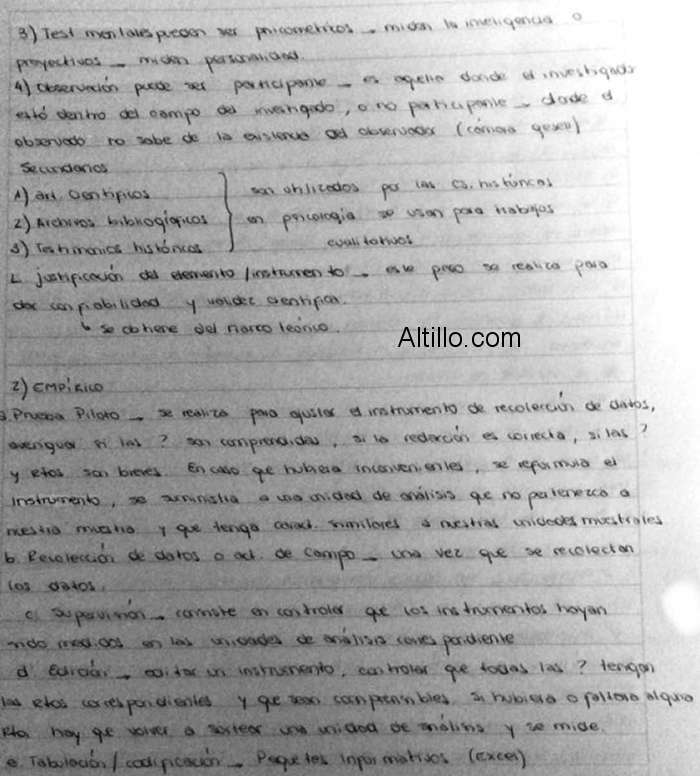 3) Test mentales pueden ser psicometricos → miden la inteligencia o
proyectivos → miden personalidad.
4) Observación puede ser participante → es aquella donde el investigador
está dentro del campo del investigado, o no participante → donde el
observado no sabe de la existencia del observador (cámara gesell)
Secundarios
1) art. científicos
2) Archivos bibliográficos
3) Testimonios históricos
son utilizados por las cs. históricas
en psicología se usan para trabajos
cualitativos
L justificación del elemento/instrumento → este paso se realiza para
dar confiabilidad y validez científica.
↳ se obtiene del marco teórico.
Altillo.com
2) EMPÍRICO
a. Prueba Piloto → se realiza para ajustar el instrumento de recolección de datos,
averiguar si las ? son comprendidas, si la redacción es correcta, si las ?
y rtas son breves. En caso que hubiera inconvenientes, se reformula el
instrumento, se suministra a una unidad de análisis que no pertenezca a
nuestra muestra y que tenga caract. similares a nuestras unidades muestrales
b. Recolección de datos o act. de campo → una vez que se recolectan
los datos.
c) Supervisión → consiste en controlar que los instrumentos hayan
sido medidos en las unidades de análisis correspondiente
d Edición → editar un instrumento, controlar que todas las ? tengan
las rtas correspondientes y que sean comprensibles. Si hubiera o faltara alguna
rta, hay que volver a sortear una unidad de análisis y se mide.
e. Tabulación/codificación → Paquetes informativos (excel)